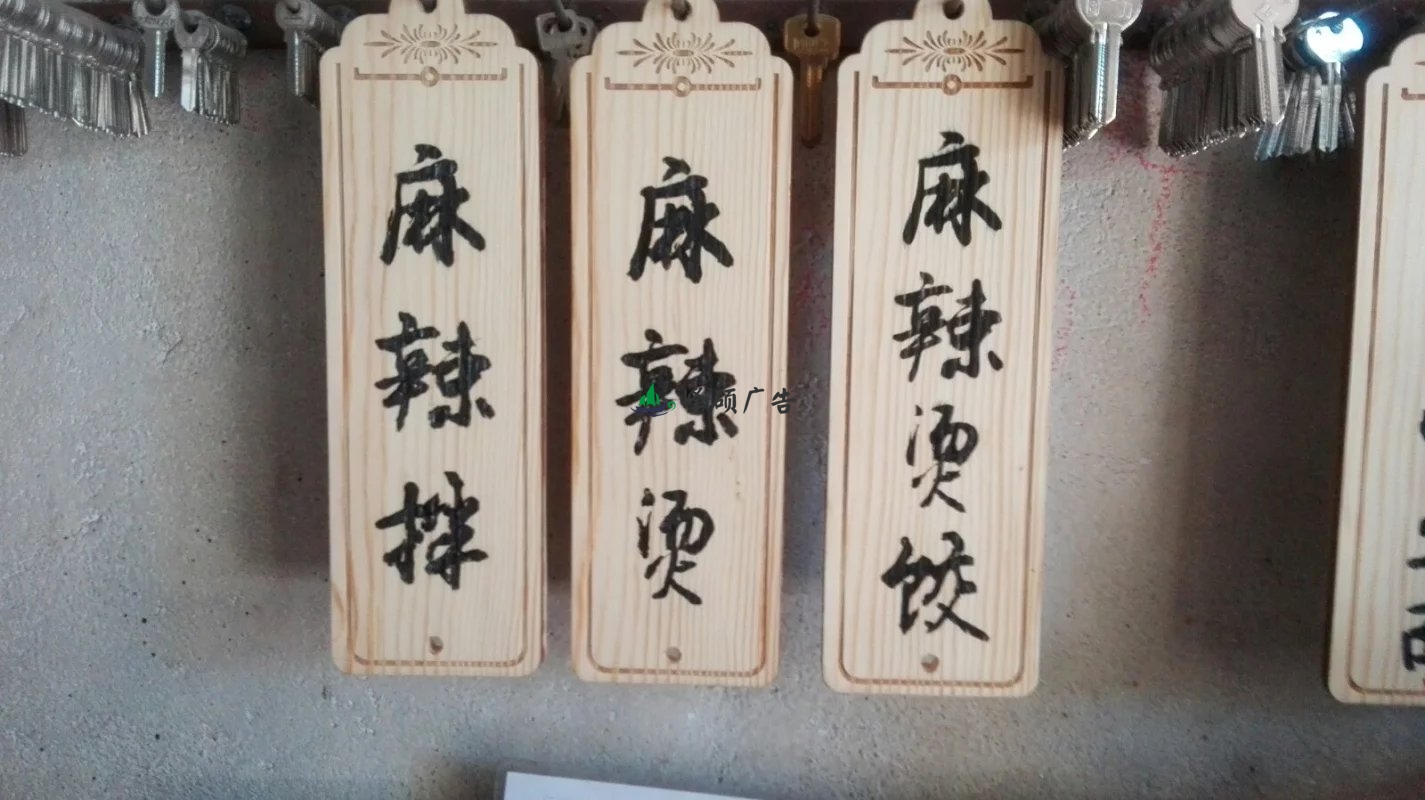 麻辣拌
麻辣烫
麻辣烫饺
硕广告